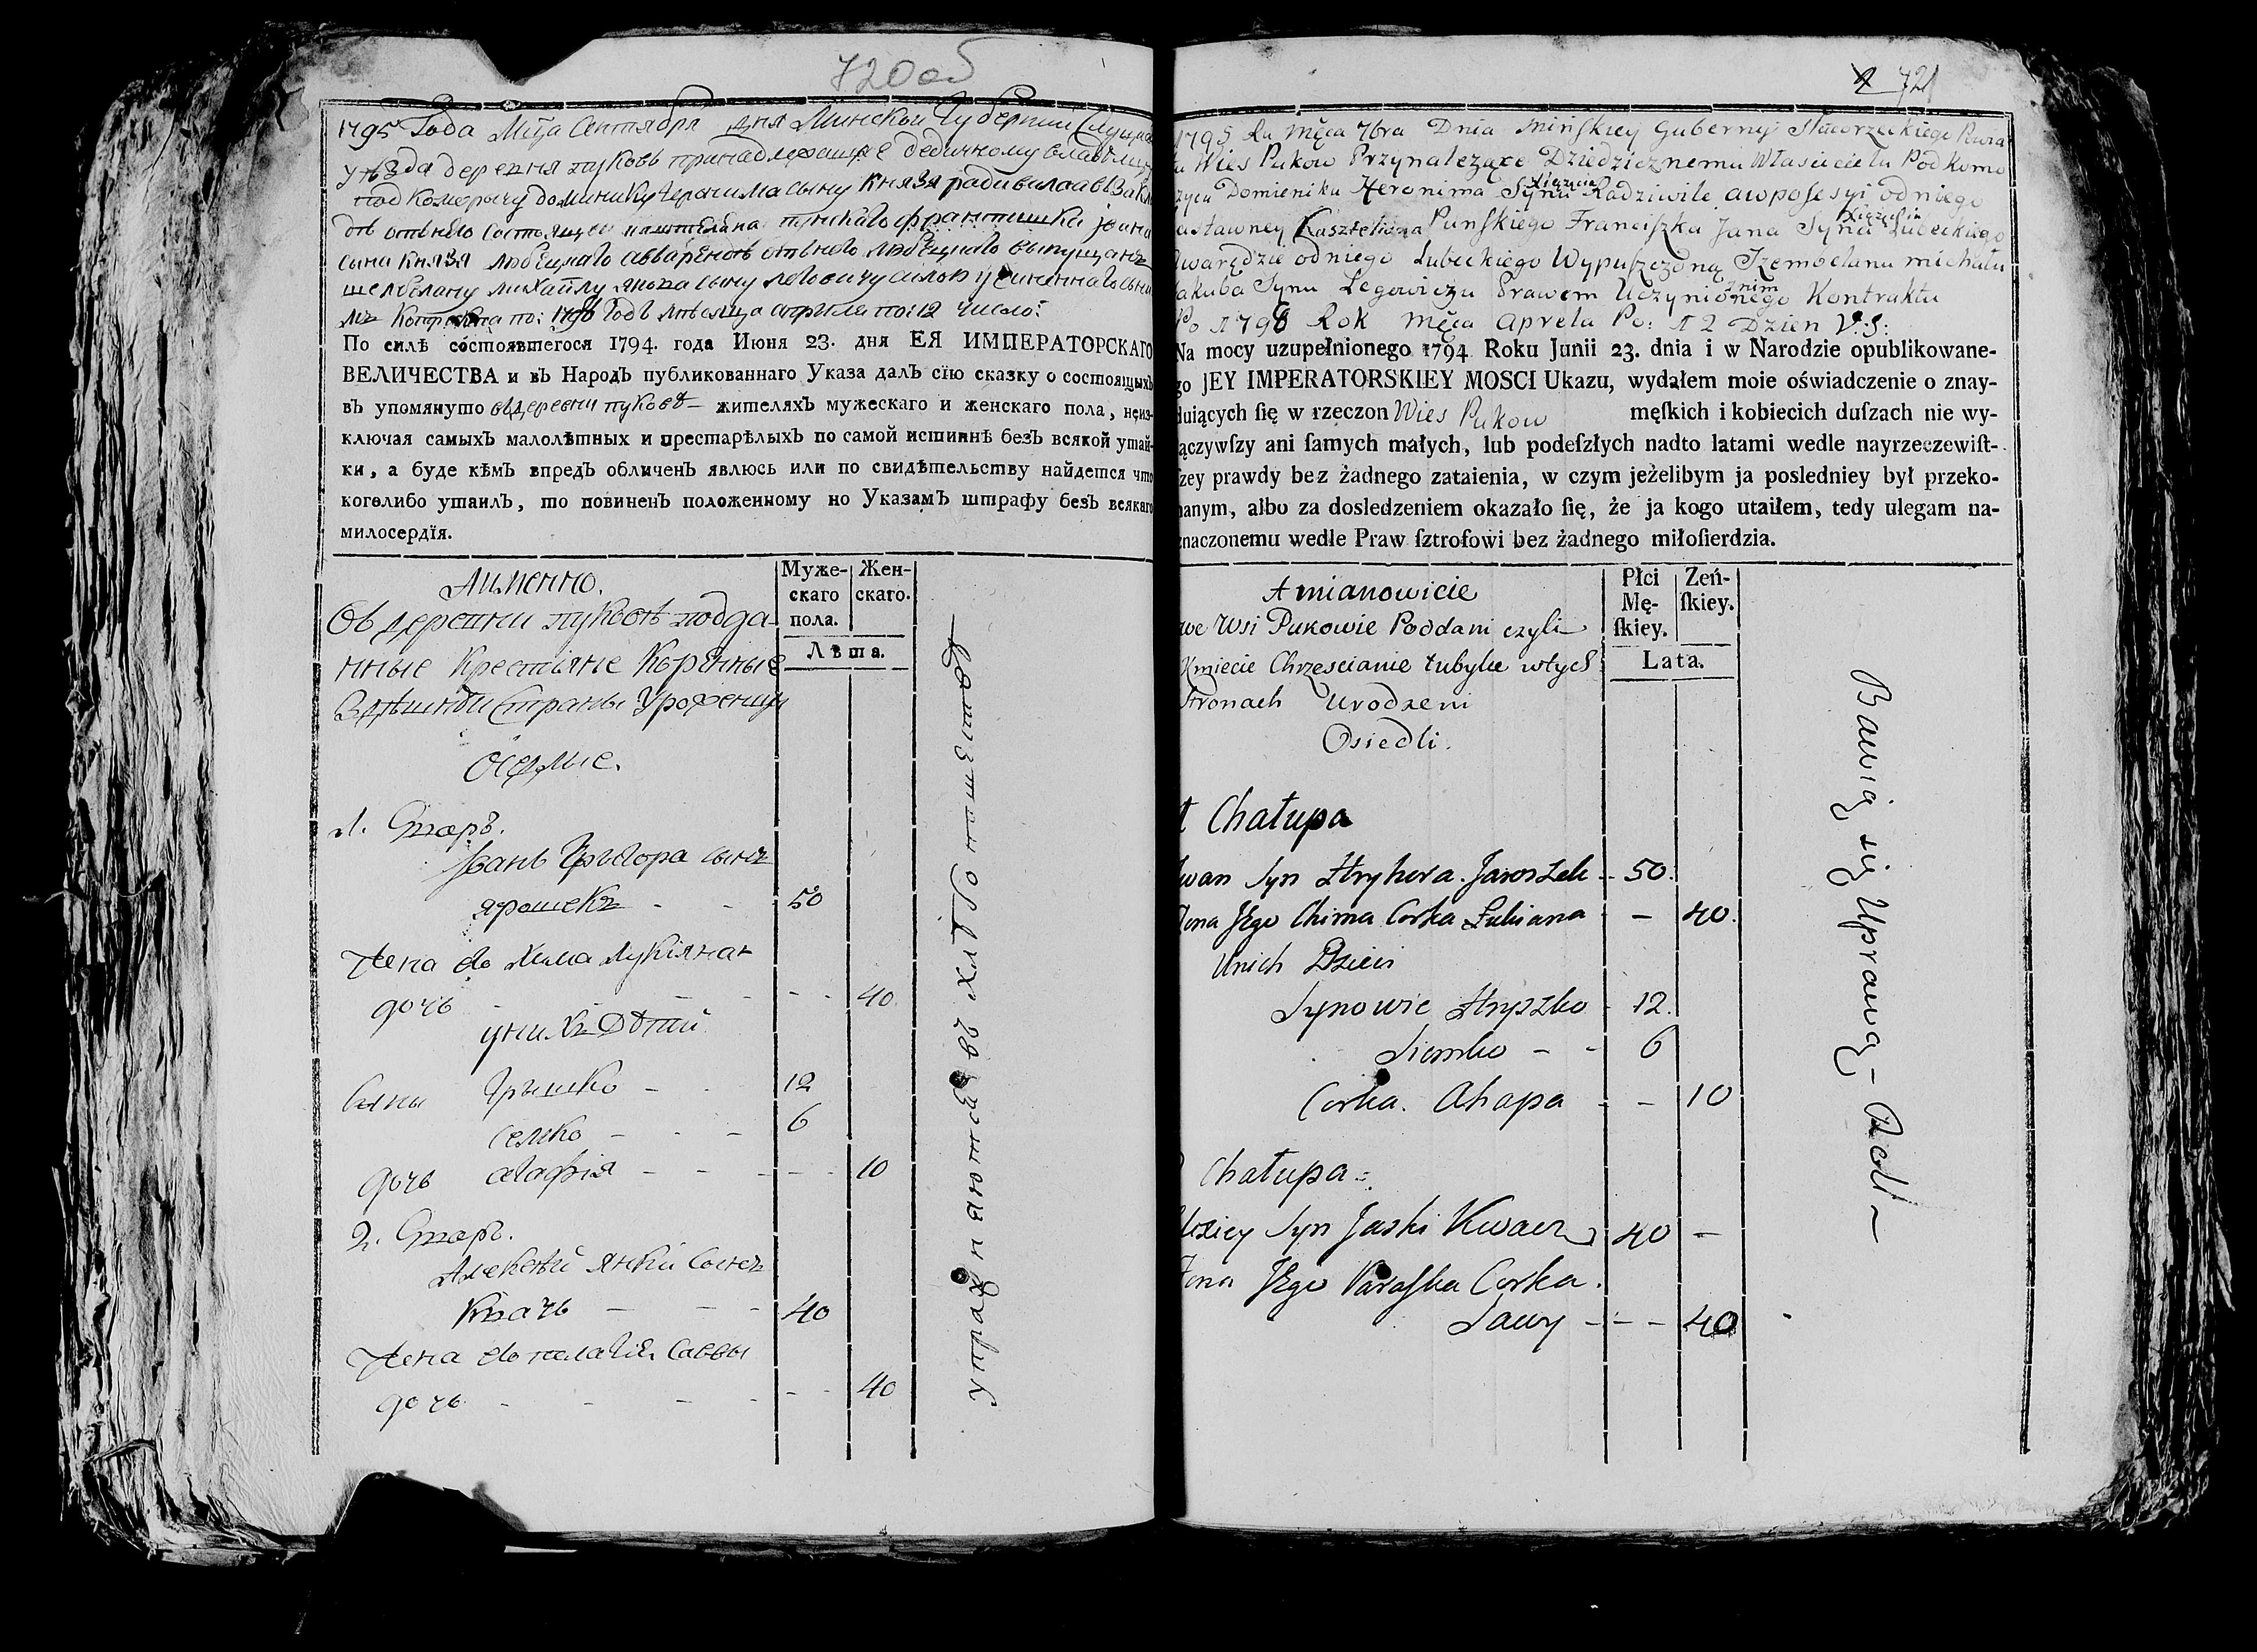 720 об
1795 Года Мца Сентября дня Минской Губернии Слуцка
уезда деревня пуковъ принадлежащѣе дедичному владѣлцу
подкоморычу доминику Герачима сыну Князя радивила авъ закла
дѣ отънего состоящеи кашталяна пунскаго францишки jоана
сына Князя любецкаго авъ арендѣ отънего любецкаго выпущанъ
михаилу якова сыну леговичу силою учиненнаго снимъ
Контракта по: 1798 годъ мѣсяца априля по: 12 число:
По силѣ состоявшегося 1794. года Июня 23. дня ЕЯ ИМПЕРАТОРСКАГО
ВЕЛИЧЕСТВА и въ Народъ публикованнаго Указа далъ сїю сказку о состоящыхъ
въ упомянуто въ деревни пуковѣ – жителяхъ мужескаго и женскаго пола, неиз-
ключая самыхъ малолѣтныхъ и престарѣлыхъ по самой истиннѣ безъ всякой утай-
ки, а буде кѣмъ впредъ обличенъ явлюсь или по свидѣтельству найдется что
коголибо утаилъ, то повиненъ положенному но Указамъ штрафу безъ всякаго
милосердїя.
Аименно.
Муже-
скаго
пола.
Жен-
скаго.
Лѣта.
Въ деревни пуковѣ подда
нные Крестьяне Коренные
Здѣшной Страны Уроженцы
Оседлые.
1. Старъ.
Jванъ Григора сынъ
ярошекъ - - 50
Жена его Хима лукіяна
дочь - - - - 40
у нихъ Дѣтй
Сыны Гришко - - 12
Семко - - - 6
дочь агафія - - - - - 10
2. Старъ.
Алексѣй янки Сынъ
Квачь - - - 40
Жена его пелагія Саввы
дочь - - - - - - 40
упражняются въ хлѣбопашествѣ
721
1795 Ru Męca 7bra Dnia Minſkiey Guberny Słuorzeckiego Powia
u Wies Pukow Przynalezące Dziedzicznemu Włascicielu Podkomo
zycu Domieniku Heronima Synu Xiązęcia Radziwile awposesyi odniego
astawney Kasztelana Punſkiego Franciſzka Jana Syna Xiązęcia Lubeckiego
warędzie odniego Lubeckiego Wypuſzczoną Szembelanu michału
akuba Synu Legowiczu Prawem Uczynionego znim Kontraktu
Po 1798 Rok Męca Aprela Po: 12 Dzien V:S:
Na mocy uzupełnionego 1794 Roku Junii 23. dnia i w Narodzie opublikowane-
go JEY IMPERATORSKIEY MOSCI Ukazu, wydałem moie oświadczenie o znay-
duiących ſię w rzeczon Wies Pukow męſkich i kobiecich duſzach nie wy-
ączywſzy ani ſamych małych, lub podeſzłych nadto latami wedle nayrzeczewiſt-
ſzey prawdy bez żadnego zataienia, w czym jeżelibym ja posledniey był przeko-
nanym, albo za dosledzeniem okazało ſię, że ja kogo utaiłem, tedy ulegam na-
znaczonemu wedle Praw ſztrofowi bez żadnego miłoſierdzia.
Amianowicie
Płci
Mę-
ſkiey.
Zeń-
ſkiey.
Lata.
we Wsi Pukowie Poddani czyli
Kmiecie Chrzescianie tubylce wtych
Stronach Urodzeni
Osiedli.
1 Chałupa
Jwan Syn Hryhora Jaroszek - 50.
Zona Jego Chima Corka Łukiana - 40.
Unich Dzieci
Synowie Hryszko - 12.
Siemko - - 6
Corka. Ahapa - - 10
Chałupa:
lexiey Syn Jaski Kwacz 40 -
Zona Jego Paraſka Corka.
Sawy - - - 40
Bawią się Uprawą - Roli -